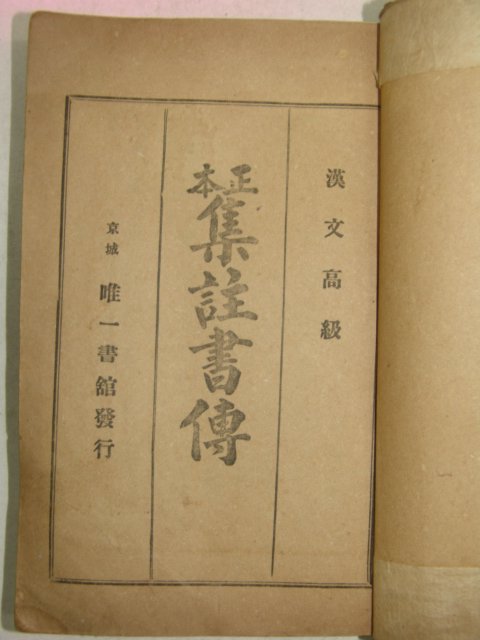 漢文高級
正本
集註書傳
京城 唯一書舘發行